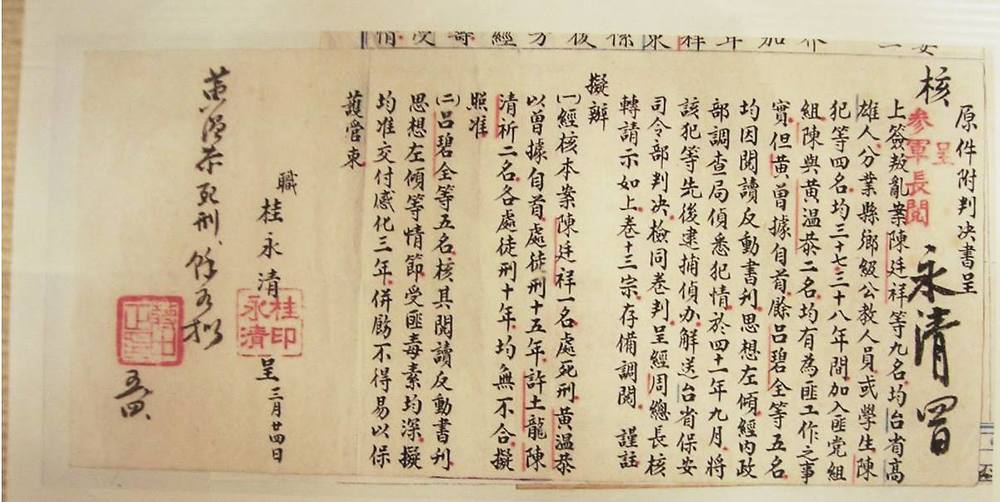 核
原件附判決書呈
呈
參軍長閱
永清
上簽叛亂案陳廷祥等九名均台省高
雄人分業縣鄉級公教人員或學生陳
犯等四名均三十七三十八年間加入匪黨組
組陳與黃温恭二名均有為匪工作之事
實但黃曾據自首餘呂碧全等五名
均因閱讀反動書刊思想左傾經內政
部調查局偵悉犯情於四十一年九月將
該犯等先後逮捕偵办解送台省保安
司令部判決檢同卷判呈經周總長核
轉請示如上卷十三宗存備調閱 謹註
擬辦
㈠經核本案陳廷祥一名處死刑黃温恭
以曾據自首處徒刑十五年許土龍陳
清祈二名各處徒刑十年均無不合擬
照准
㈡呂碧全等五名核其閱讀反動書刊
思想左傾等情節受匪毒素均深擬
均准交付感化三年併飭不得易以保
護管束
職桂永清 呈 三月廿四日
桂永清印
黃温恭死刑,餘如擬
蔣中正印
五四